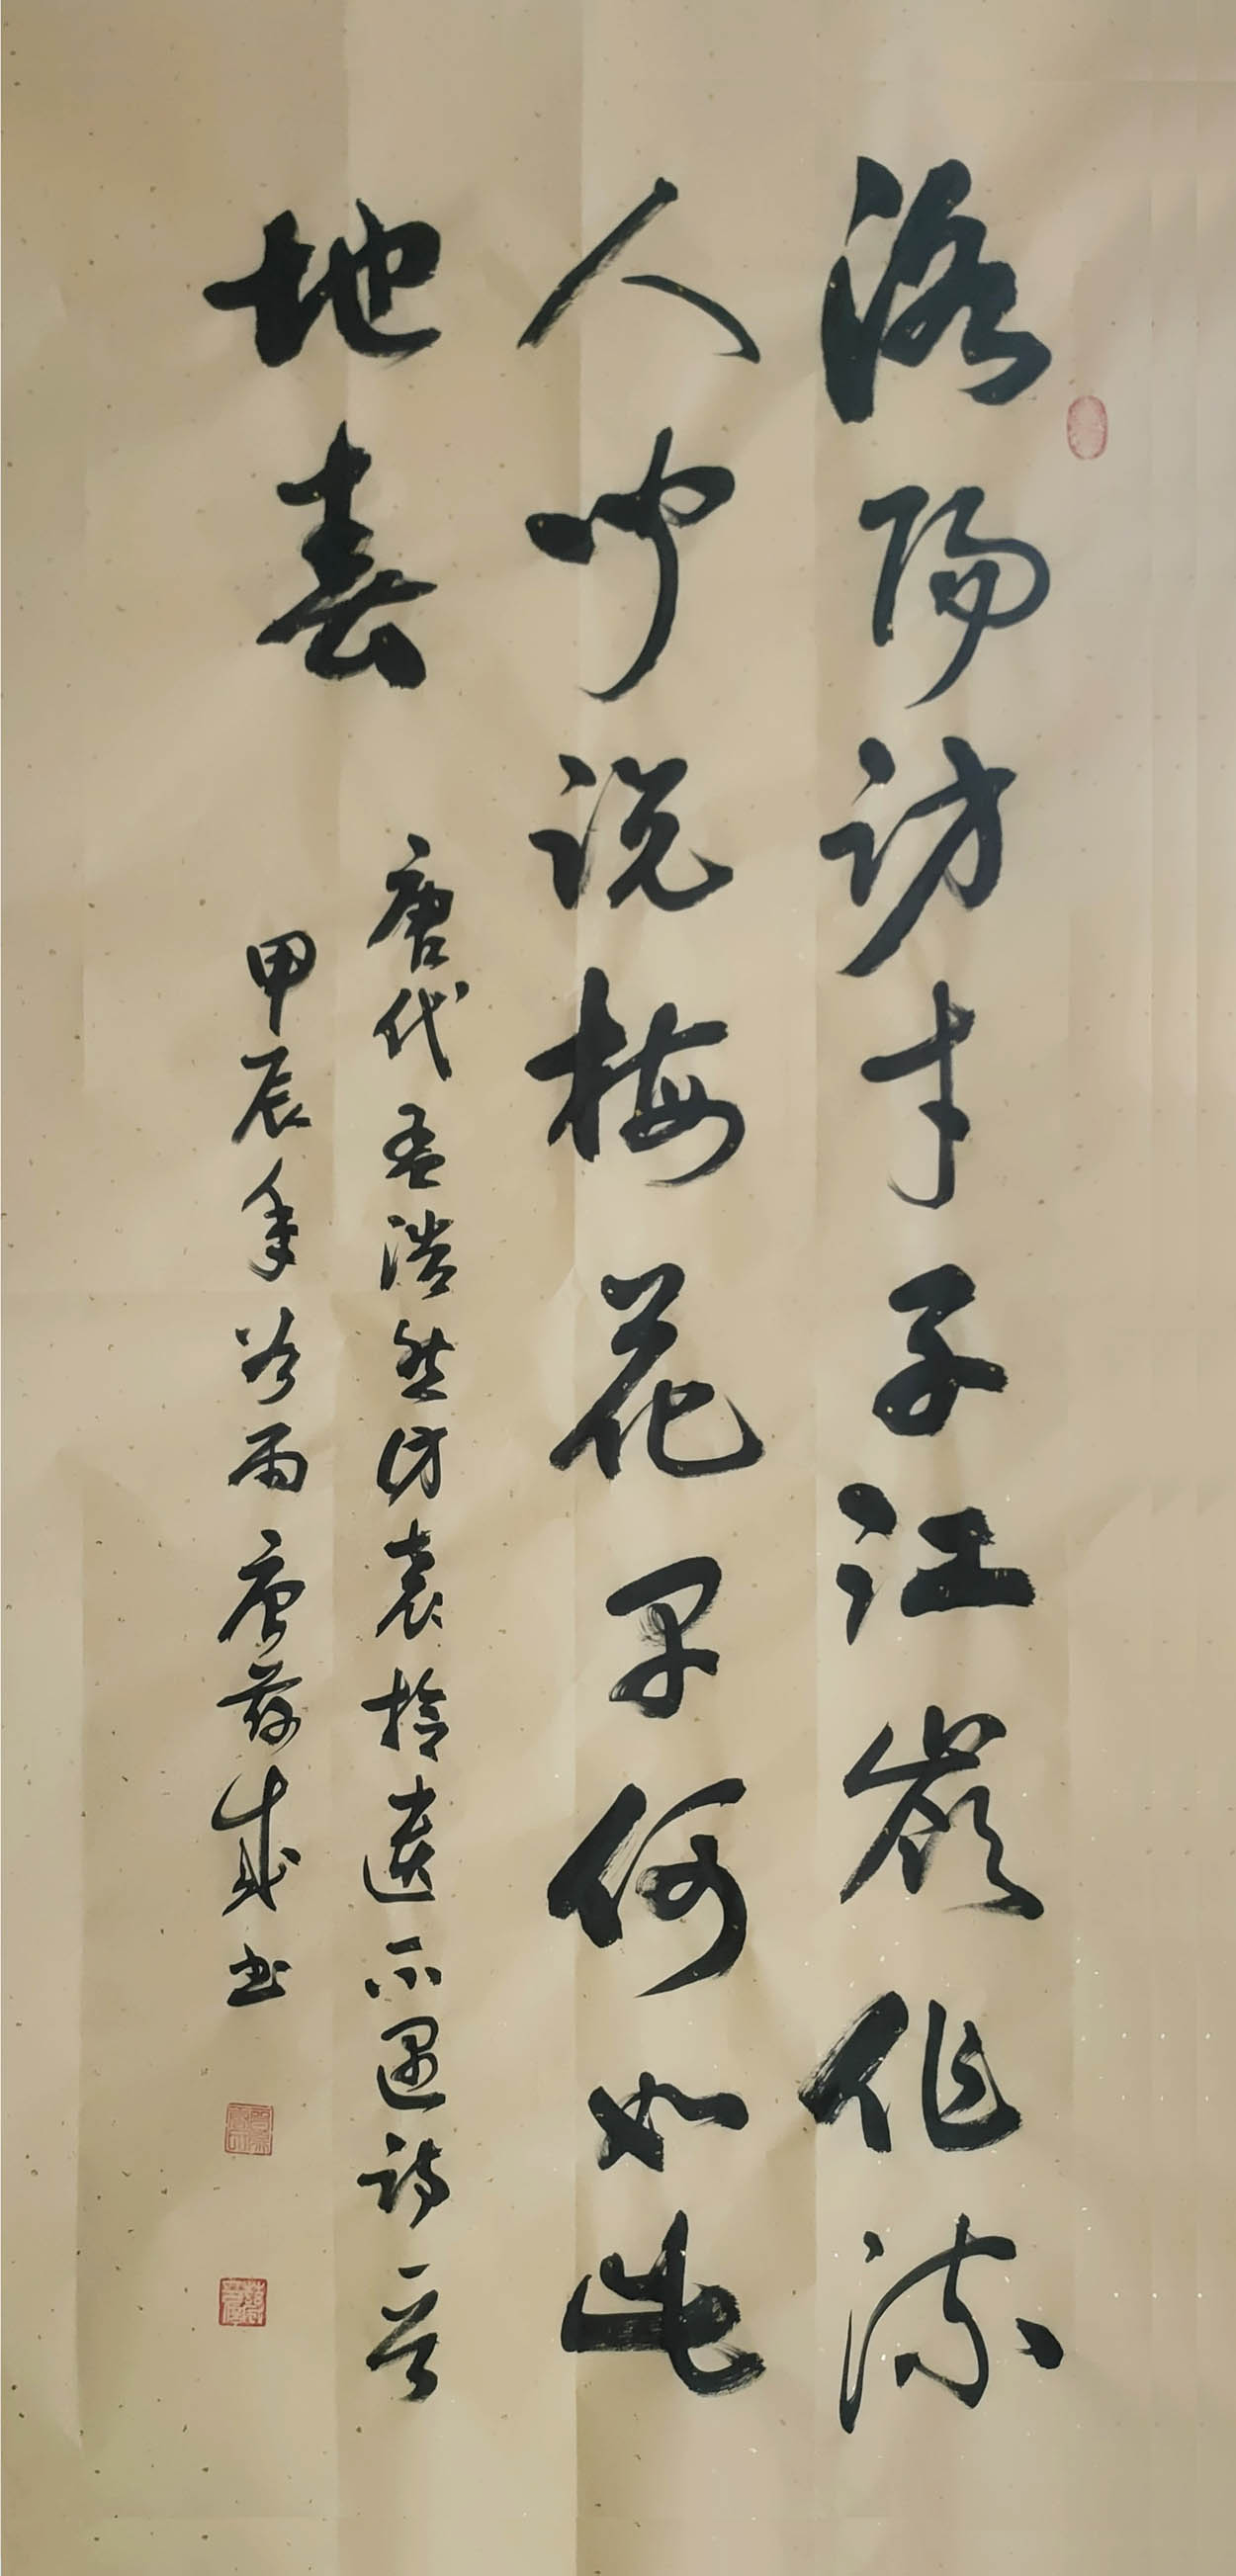 洛陽访才子江嶺作流
人闻说梅花早何如此
地春
唐代孟浩然访袁拾遗不遇诗一首
甲辰年谷雨唐成书